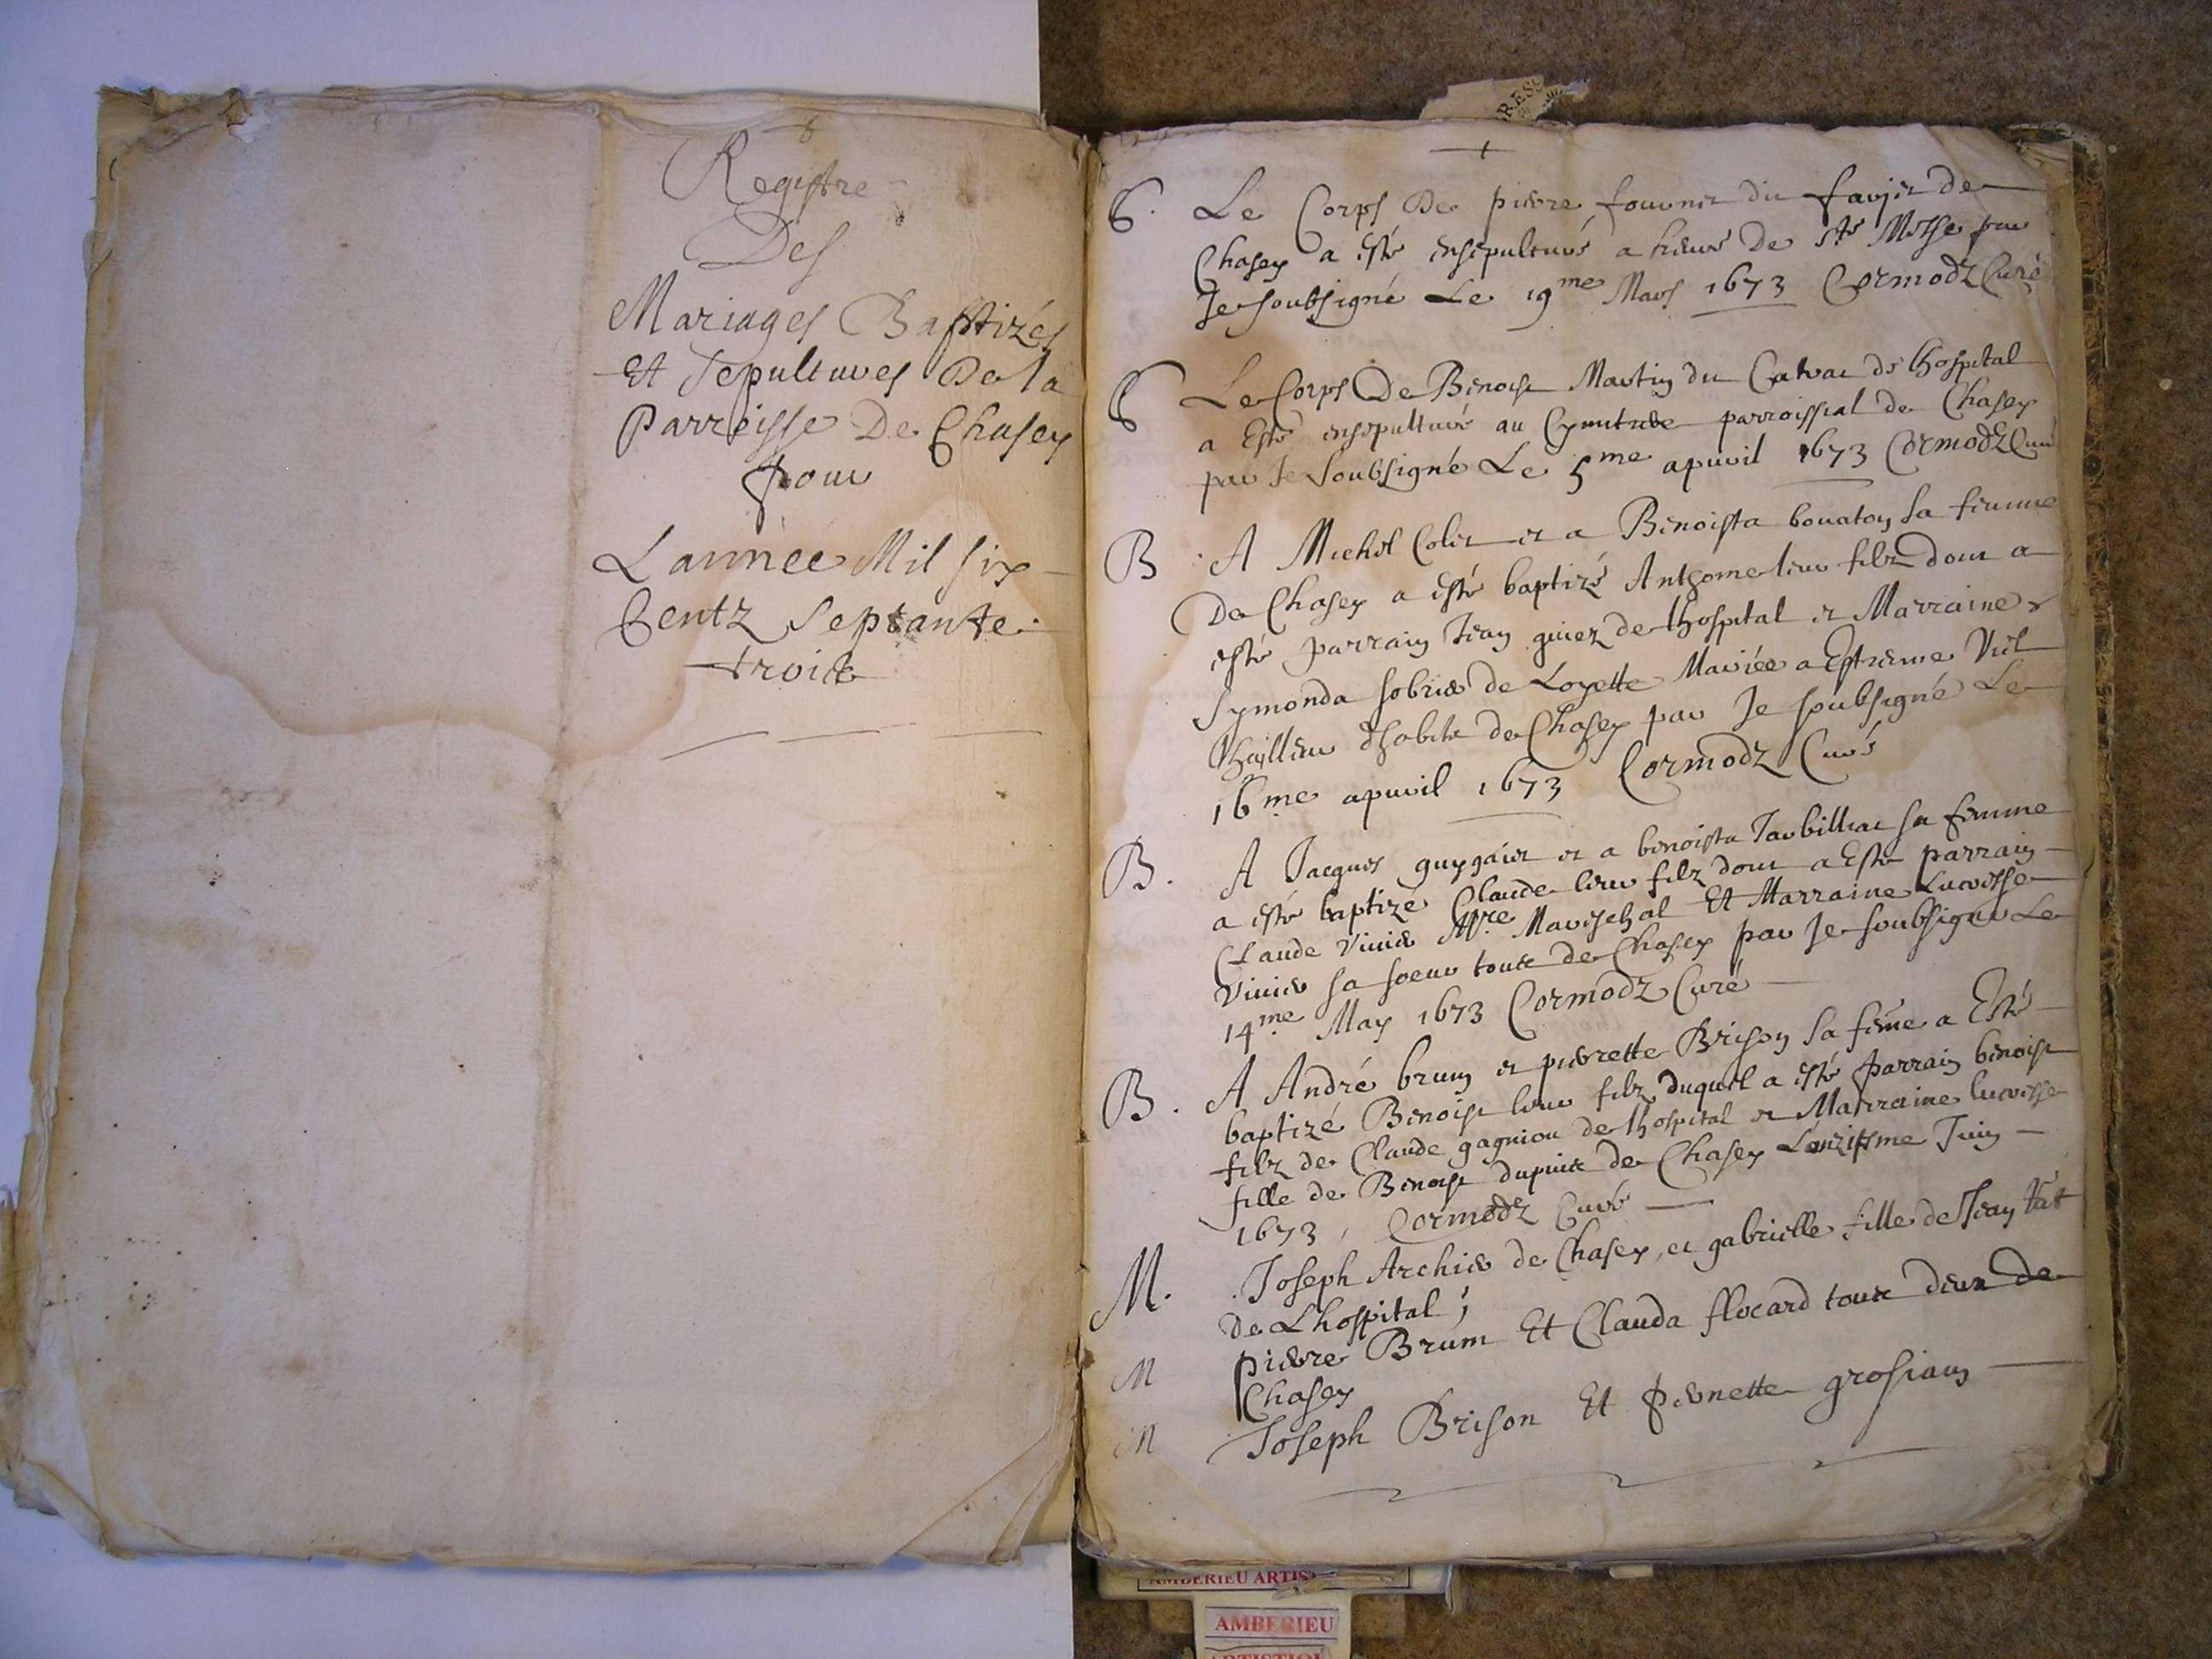 Registre
Des
Mariages Baptizés
Et Sepultures De la
Parroisse De Chasey
pour
L'année Mil six
Centz Septante
trois
RESS
S. Le Corps De pierre fournier du favier de
Chasey a esté ensepulturé a lieure de ste Messe par
Je soubsigné Le 19me Mars 1673 Cormodz Curé
S Le Corps De Benoist Martin du de lhospital
a Esté ensepulturé au Cymitiere parroissial de Chasey
par Je Soubsigné Le 5me apuril 1673 Cormodz Curé
B A Michel Colet et a Benoista bouaton sa femme
De Chasey a esté baptizé Anthome leur filz dont a
esté parrain Jean guiez de lhospital et Marraine
Symonda sobrier de Loyette Mariée a Estienne
de Chasey par Je soubsigné Le
16me apuril 1673 Cormodz Curé
B. A Jacques guygaiet et a benoista sa femme
a esté baptizé Claude leur filz dont a Esté parrain
Claude Vivier Mre Mareschal Et Marraine Lucresse
Vivier sa soeur touts de Chasey par Je soubsigné Le
14me May 1673 Cormodz Curé
B. A André brun et pierrette Brison sa féme a Esté
baptizé Benoist leur filz duquel a esté parrain benoist
filz de Claude gagniou de lhospital et Marraine lucresse
fille de Benoist dupuis de Chasey L'onziesme Juin
1673, Cormodz Curé
M. Joseph Archier de Chasey, et gabrielle fille de Jean
De Lhospital;
M pierre Brum Et Clauda flocard touts deux de
Chasey
M Joseph Brison Et pernette grosian
AMBERIEU ARTIS
AMBERIEU